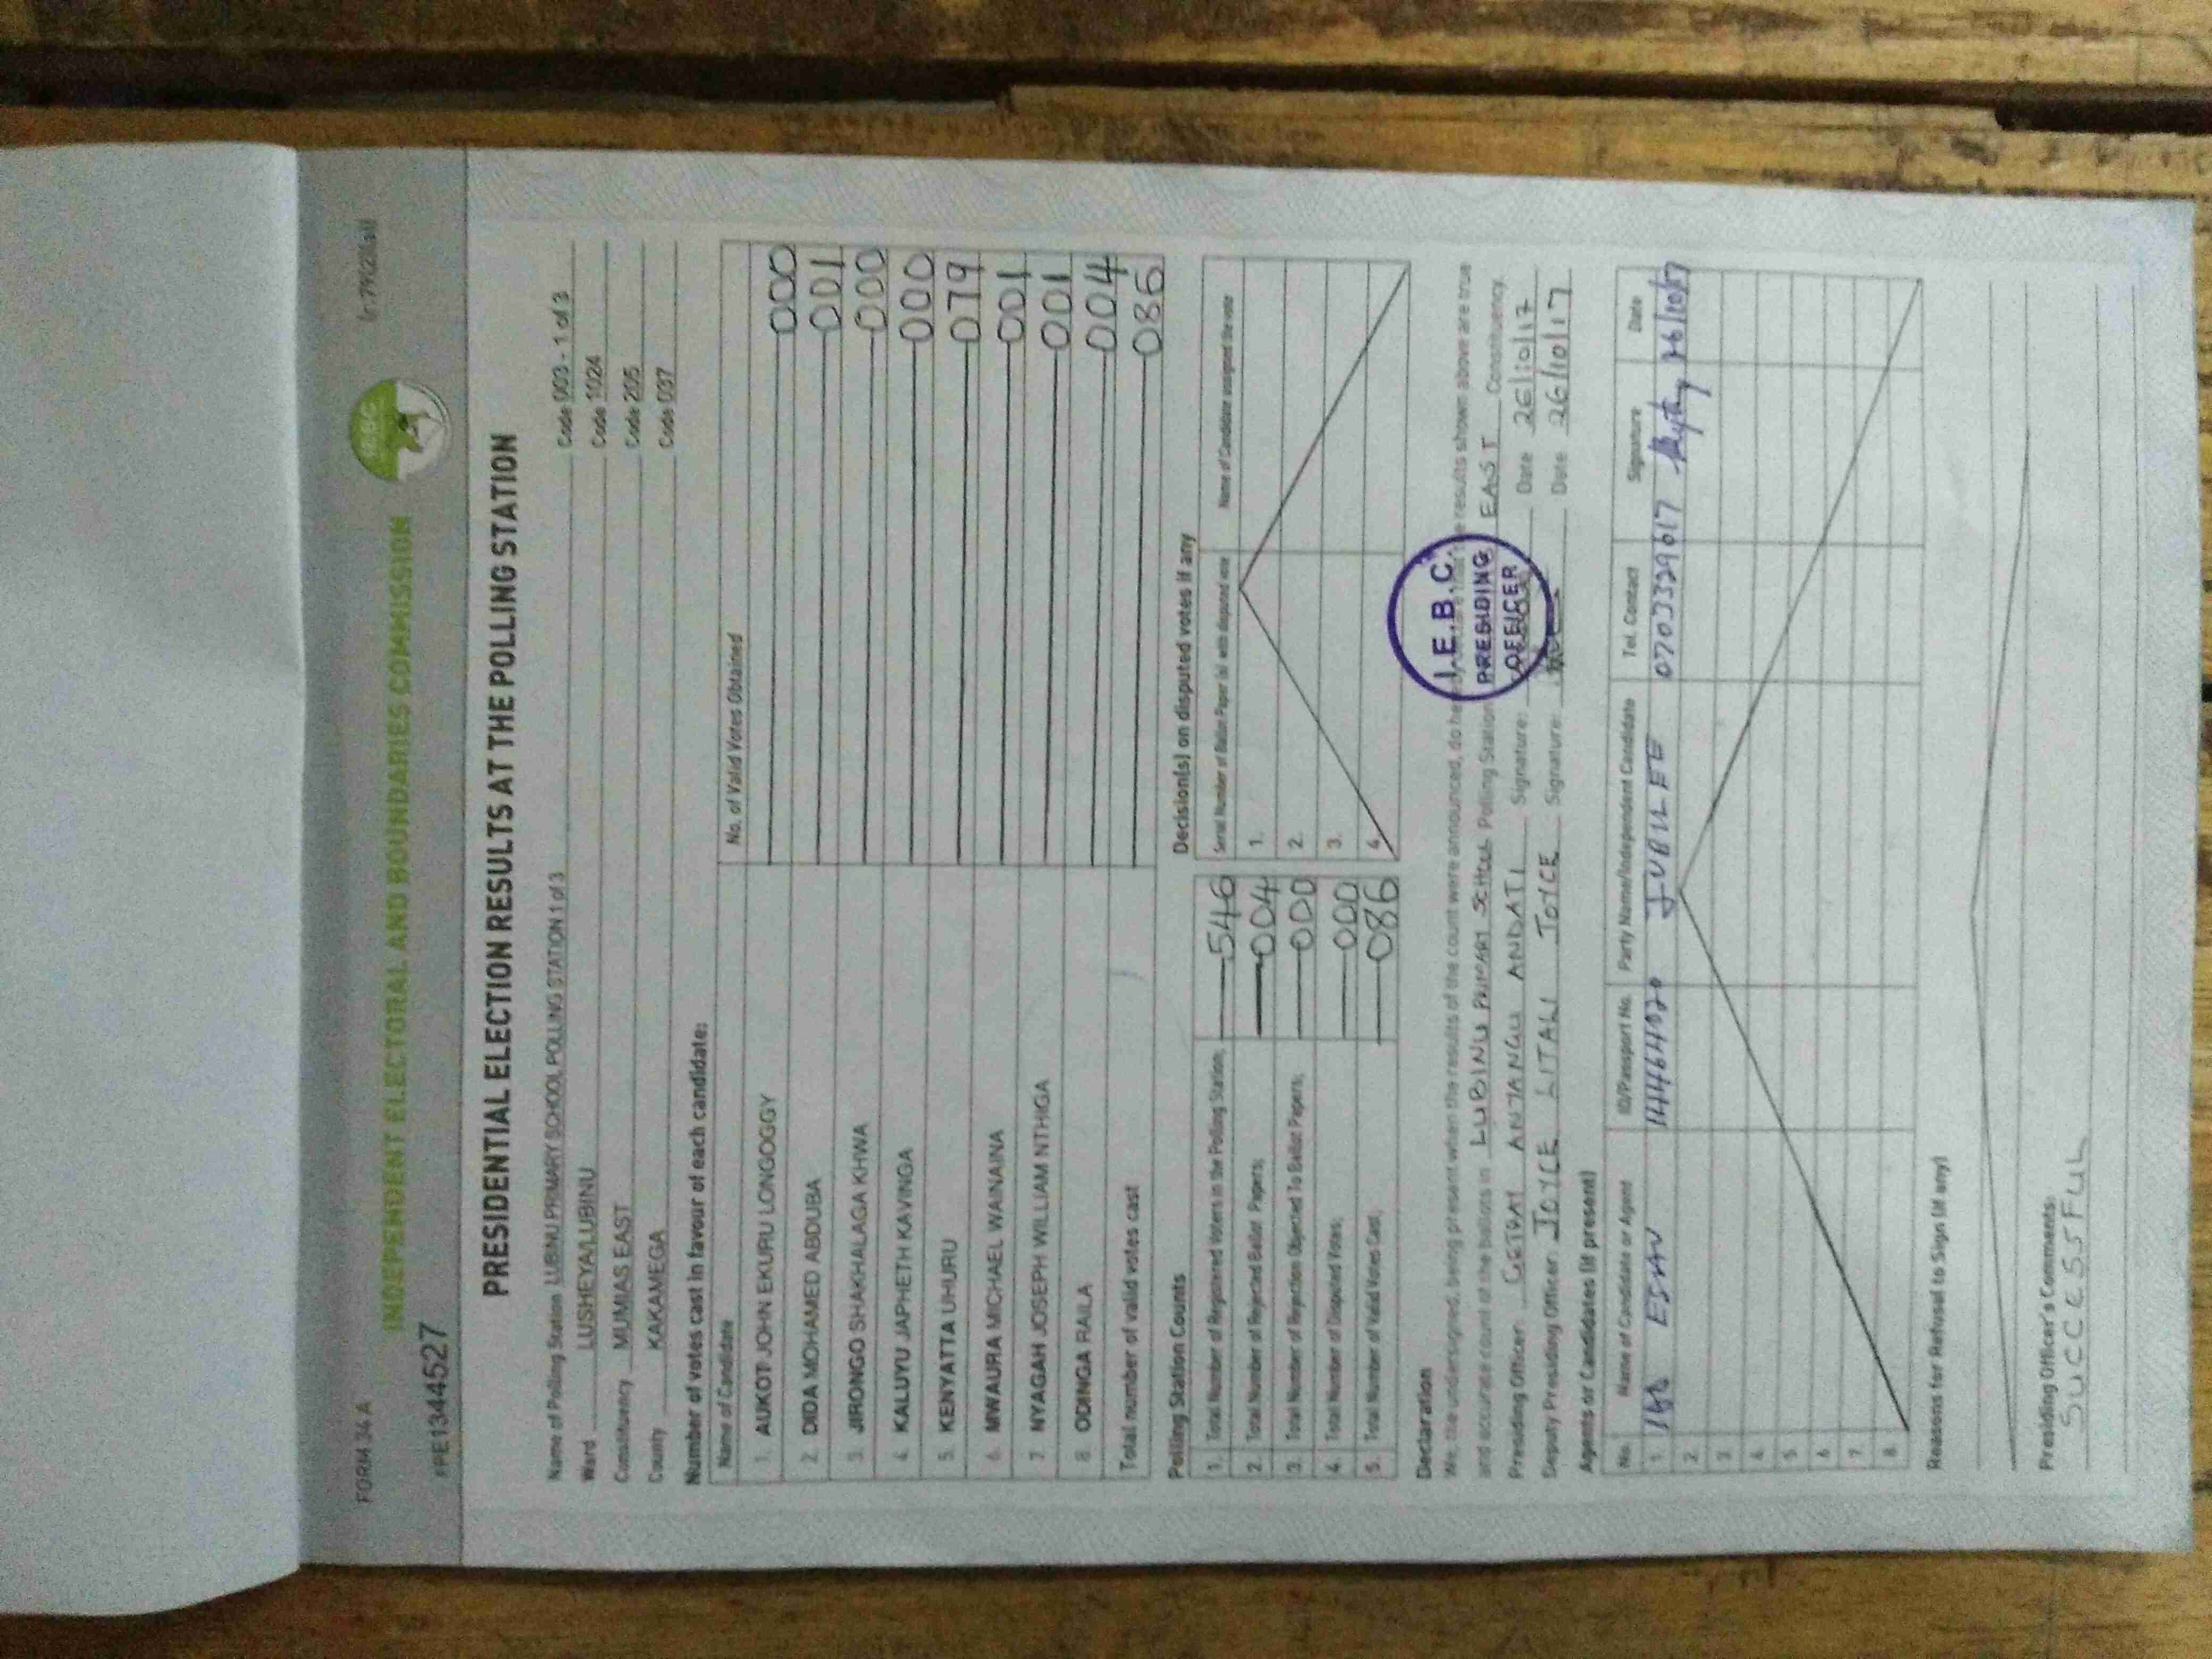 FORM 34 A
INDEPENDENT ELECTORAL AND BOUNDARIES COMMISSION
IEBC
#PE1344527
PRESIDENTIAL ELECTION RESULTS AT THE POLLING STATION
Name of Polling Station LUBINU PRIMARY SCHOOL POLLING STATION 1 of 3 Code 003 - 1 of 3
Ward LUSHEYA/LUBINU Code 1024
Constituency MUMIAS EAST Code 205
County KAKAMEGA Code 037
Number of votes cast in favour of each candidate:
Name of Candidate No. of Valid Votes Obtained
1. AUKOT JOHN EKURU LONGOGGY 000
2. DIDA MOHAMED ABDUBA 001
3. JIRONGO SHAKHALAGA KHWA 000
4. KALUYU JAPHETH KAVINGA 000
5. KENYATTA UHURU 079
6. MWAURA MICHAEL WAINAINA 001
7. NYAGAH JOSEPH WILLIAM NTHIGA 001
8. ODINGA RAILA 004
Total number of valid votes cast 086
Polling Station Counts
1. Total Number of Registered Voters in the Polling Station; 546
2. Total Number of Rejected Ballot Papers; 004
3. Total Number of Rejection Objected To Ballot Papers; 000
4. Total Number of Disputed Votes; 000
5. Total Number of Valid Votes Cast; 086
Decision(s) on disputed votes if any
Serial Number of Ballot Paper (s) with disputed vote Name of Candidate assigned the vote
1.
2.
3.
4.
Declaration
We, the undersigned, being present when the results of the count were announced, do he results shown above are true
and accurate count of the ballots in LUBINU PRIMARY SCHOOL Polling Station EAST Constituency.
Presiding Officer: ANJANGU ANDATI Signature: Date 26/10/17
Deputy Presiding Officer: JOYCE LITALI JOYCE Signature: Date 26/10/17
I.E.B.C.
PRESIDING
OFFICER
Agents or Candidates (if present)
No. Name of Candidate or Agent ID/Passport No. Party Name/Independent Candidate Tel. Contact Signature Date
1 ESAU 14464020 JUBILEE 0703329617 26/10/17
2.
3
4
5
6
7
8
Reasons for Refusal to Sign (if any)
Presiding Officer's Comments:
SUCCESSFUL